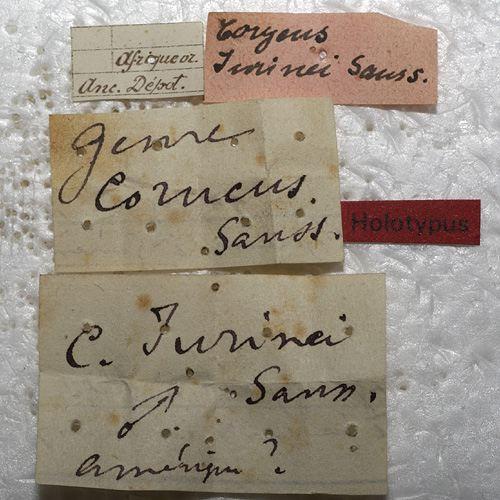 Afrique or.
Anc. Dépot.
Coryeus
Jurinei Sauss.
genre
Corneus.
Sauss.
Holotypus
C. Jurinei
Sauss.
♂
amérique?